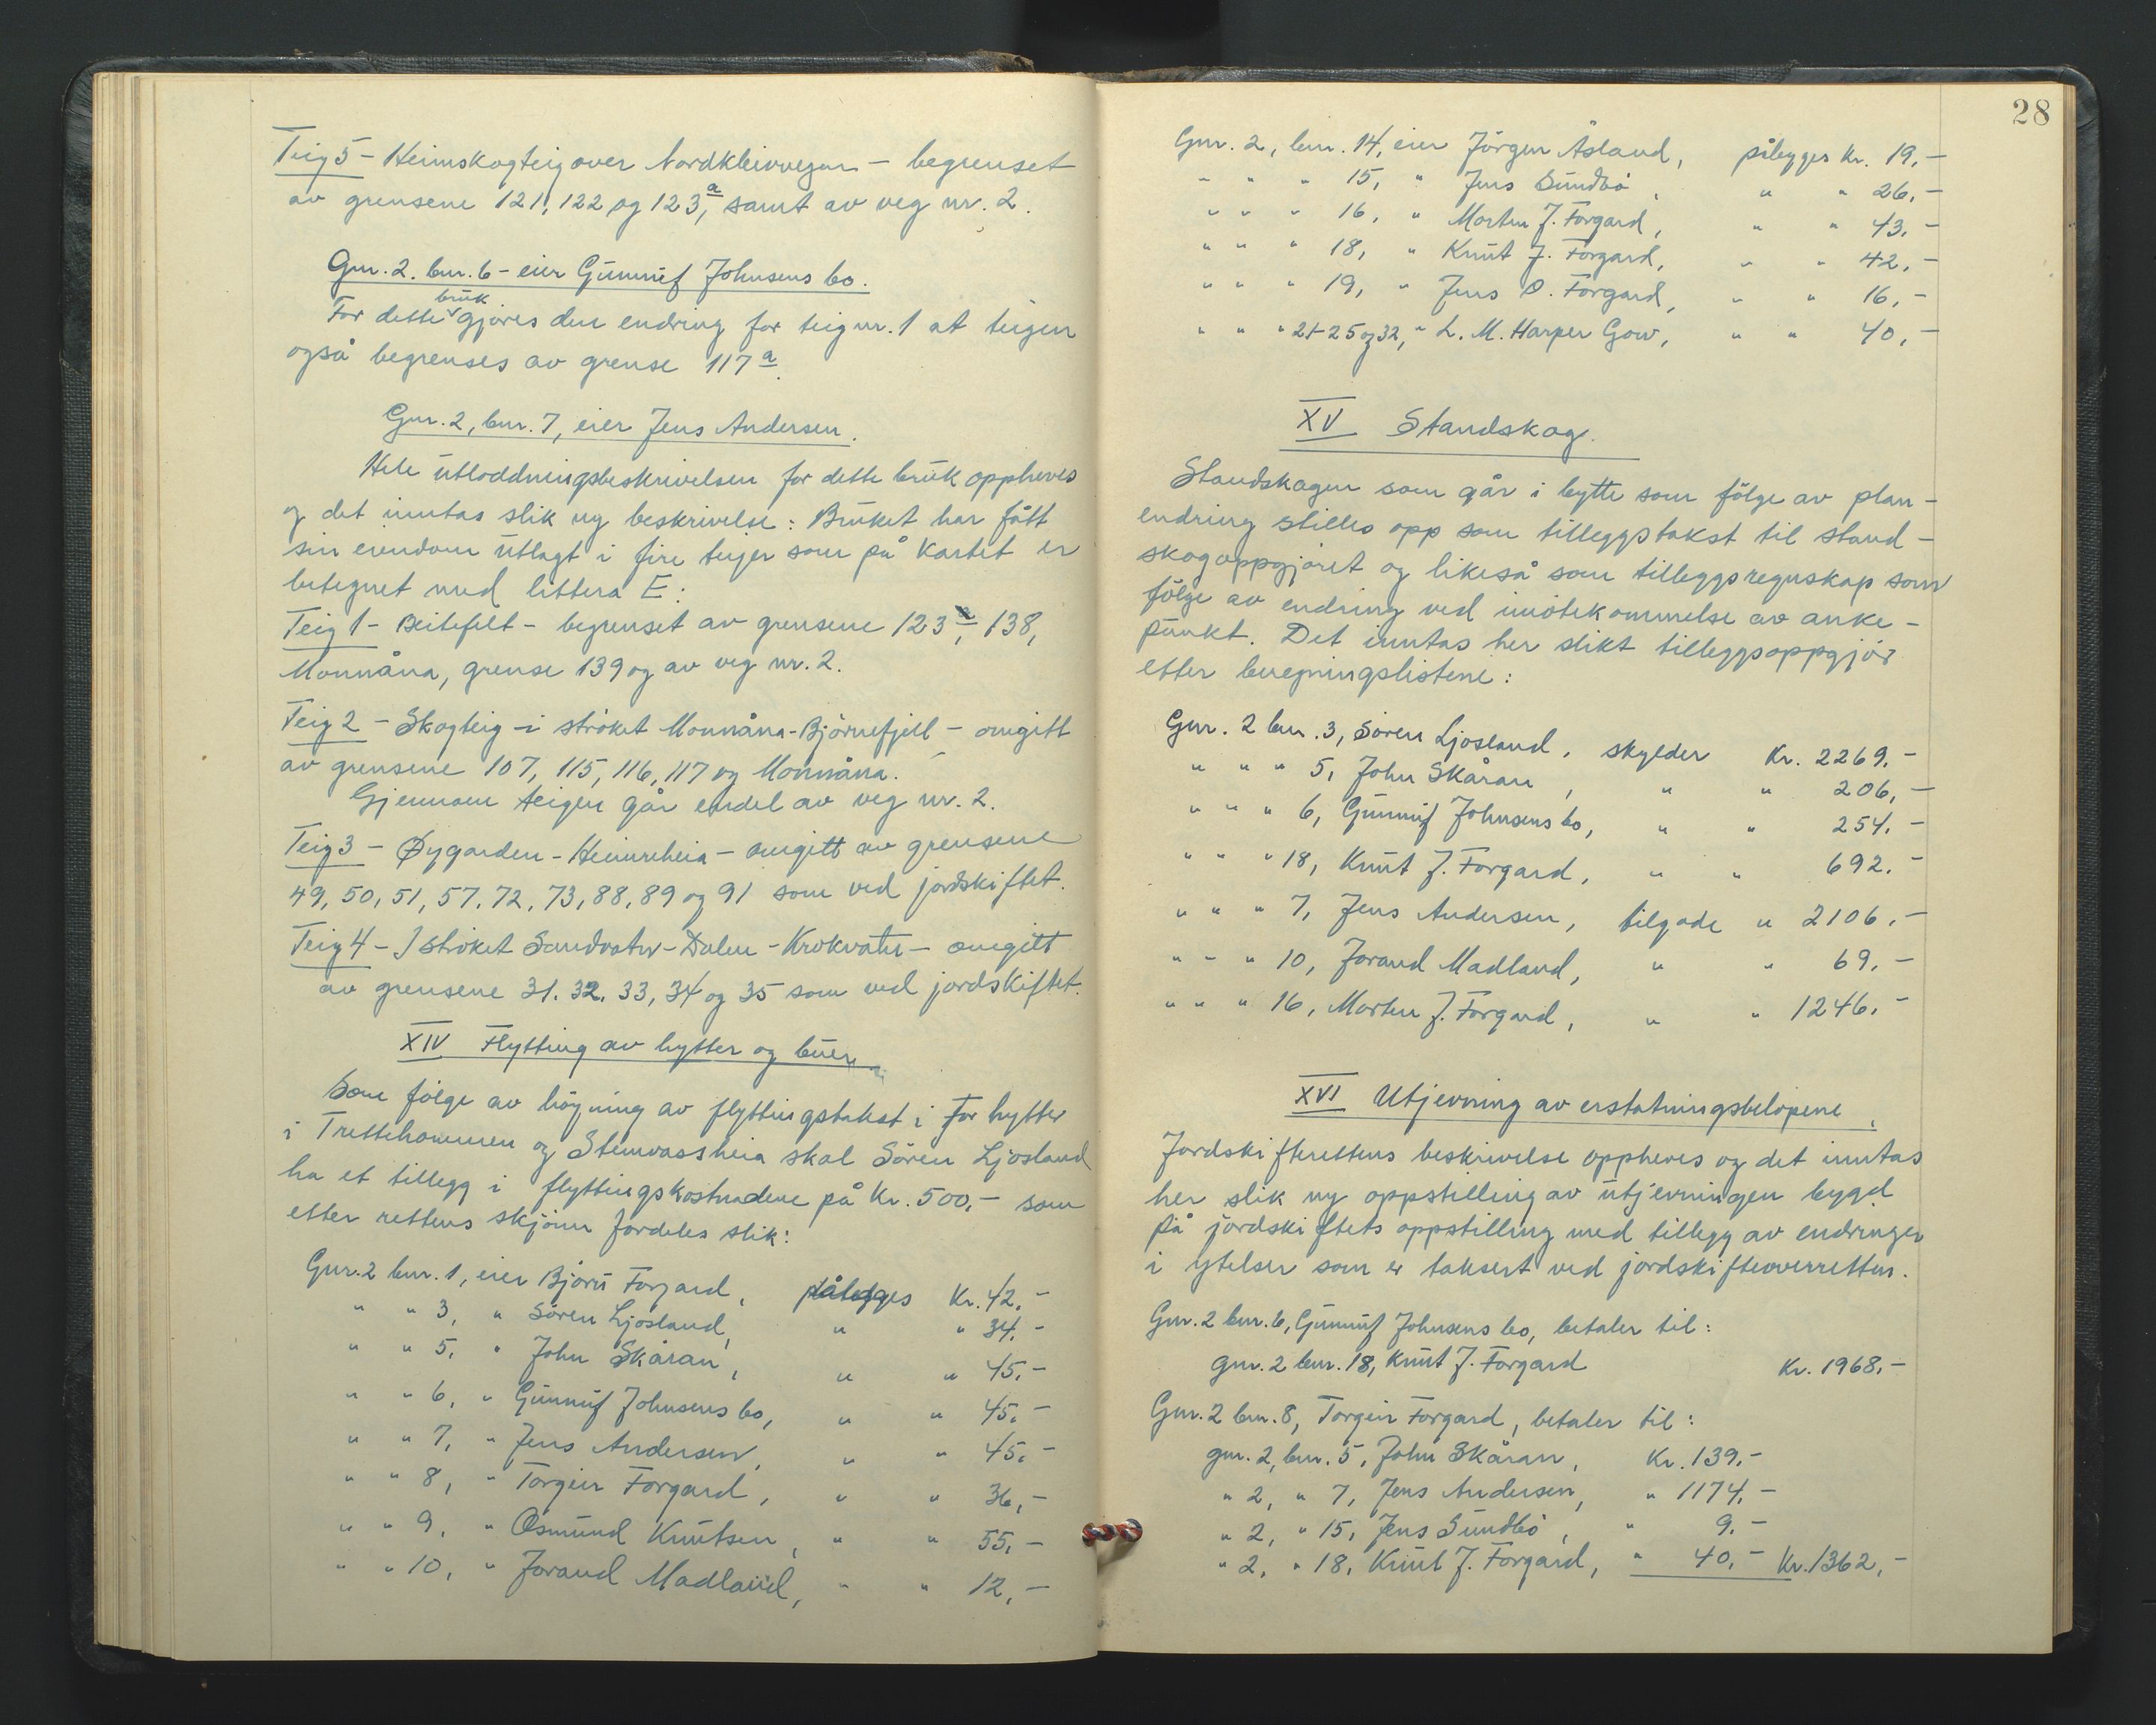 Teig 5 - Heimskogteig over Nordkleivvegen - begrenset
av grensene 121, 122 og 123a, samt av veg nr. 2.
Gnr. 2. bnr. 6 - eier Gunnuf Johnsens bo.
For dette bruk gjøres den endring for teig nr. 1 at teigen
også begrenses av grense 117a.
Gnr. 2, bnr. 7, eier Jens Andersen.
Hele utloddningsbeskrivelsen for dette bruk oppheves
og det inntas slik ny beskrivelse: Bruket har fått
sin eiendom utlagt i fire teiger som på kartet er
betegnet med littera E:
Teig 1 - Beitefelt - begrenset av grensene 123a, 138,
Monnåna, grense 139 og av veg nr. 2.
Teig 2 - Skogteig - i strøket Monnåna - Bjørnefjell - omgitt
av grensene 107, 115, 116, 117 og Monnåna.
Gjennom teigen går endel av veg nr. 2.
Teig 3 - Øygarden - Heimreheia - omgitt av grensene
49, 50, 51, 57, 72, 73, 88, 89 og 91 som ved jordskiftet.
Teig 4 - I strøket Sandvatn - Dalen - Krokvatn - omgitt
av grensene 31. 32. 33, 34 og 35 som ved jordskiftet.
XIV Flytting av hytter og buer
Som følge av høyning av flyttingstakst i for hytter
i Trettehommen og Stemvassheia skal Sören Ljosland
ha et tillegg i flyttingskostnadene på kr. 500,- som
etter rettens skjönn fordeles slik:
Gnr. 2 bnr. 1, eier Björn Forgard, pålegges kr. 42,-
" " 3, " Sören Ljosland, " " 34,-
" " 5, " John Skåran, " " 45,-
" " 6, " Gunnuf Johnsens bo, " " 45,-
" " 7, " Jens Andersen, " " 45,-
" " 8, " Torgeir Forgard, " " 36,-
" " 9, " Osmund Knutsen, " " 55,-
" " 10, " Jorand Madland, " " 12,-
28
Gnr. 2, bnr. 14, eier Jörgen Åsland, pålegges kr. 19,-
" " " 15, " Jens Sundbö, " " 26,-
" " " 16, " Morten J. Forgard, " " 43,-
" " " 18, " Knut J. Forgard, " " 42,-
" " " 19, " Jens O. Forgard, " " 16,-
" " " 21-25 og 32, " L. M. Harper Gow, " " 40,-
XV Standskog.
Standskogen som går i bytte som följe av plan-
endring stilles opp som tilleggstakst til stand-
skogoppgjöret og likeså som tilleggsregnskap som
fölge av endring ved imötekommelse av anke-
punkt. Det inntas her slikt tilleggsoppgjör
etter beregningslistene:
Gnr. 2 bnr. 3, Sören Ljosland, skylder kr. 2269,-
" " " 5, John Skåran, " " 206,-
" " " 6, Gunnuf Johnsens bo, " " 254,-
" " " 18, Knut J. Forgard, " " 692,-
" " " 7, Jens Andersen, tilgode " 2106,-
" " " 10, Jorand Madland, " " 69,-
" " " 16, Morten J. Forgard, " " 1246,-
XVI Utjevning av erstatningsbelöpene
Jordskifterettens beskrivelse oppheves og det inntas
her slik ny oppstilling av utjevningen bygd
på jordskiftets oppstilling med tillegg av endringer
i ytelser som er taksert ved jordskifteoverretten.
Gnr. 2 bnr. 6, Gunnuf Johnsens bo, betaler til:
gnr. 2 bnr. 18, Knut J. Forgard kr. 1968,-
Gnr. 2 bnr. 8, Torgeir Forgard, betaler til:
gnr. 2, bnr. 5, John Skåran, kr. 139,-
" 2, " 7, Jens Andersen, " 1174,-
" 2, " 15, Jens Sundbö, " 9,-
" 2, " 18, Knut J. Forgard, " 40,- kr. 1362,-